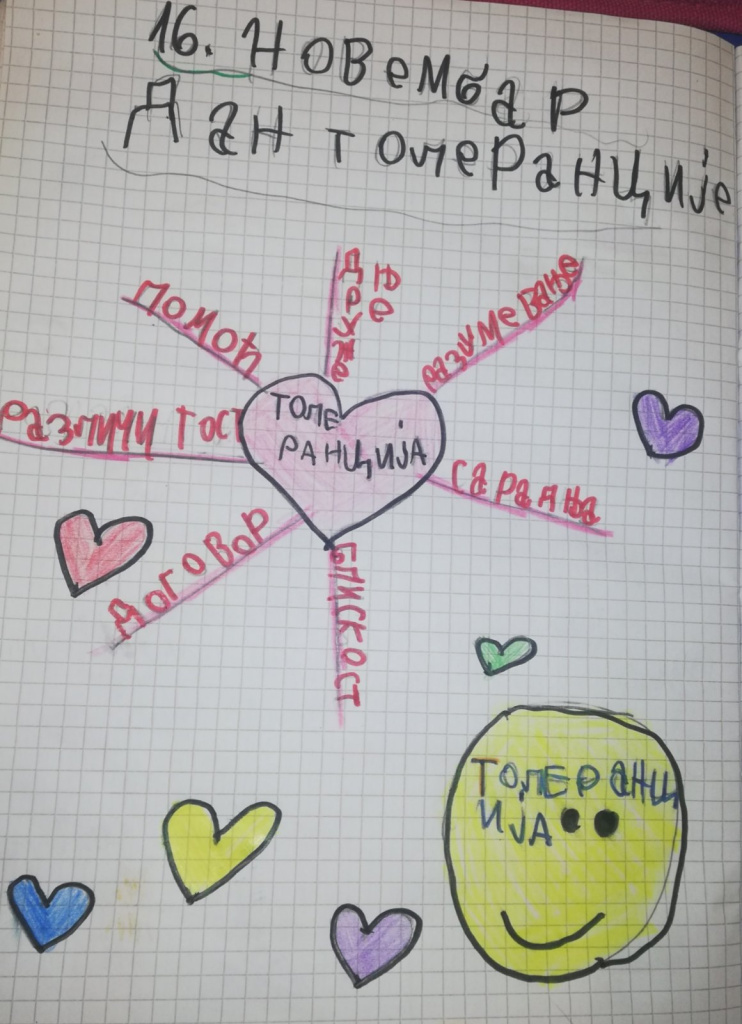 16. Новембар
Дан толеранције
помоћ
разумевање
различи тост
ТОЛЕ
РАНЦИЈА
сарадња
договор
БЛИСКОСТ
ТОЛЕРАНЦ
ИЈА